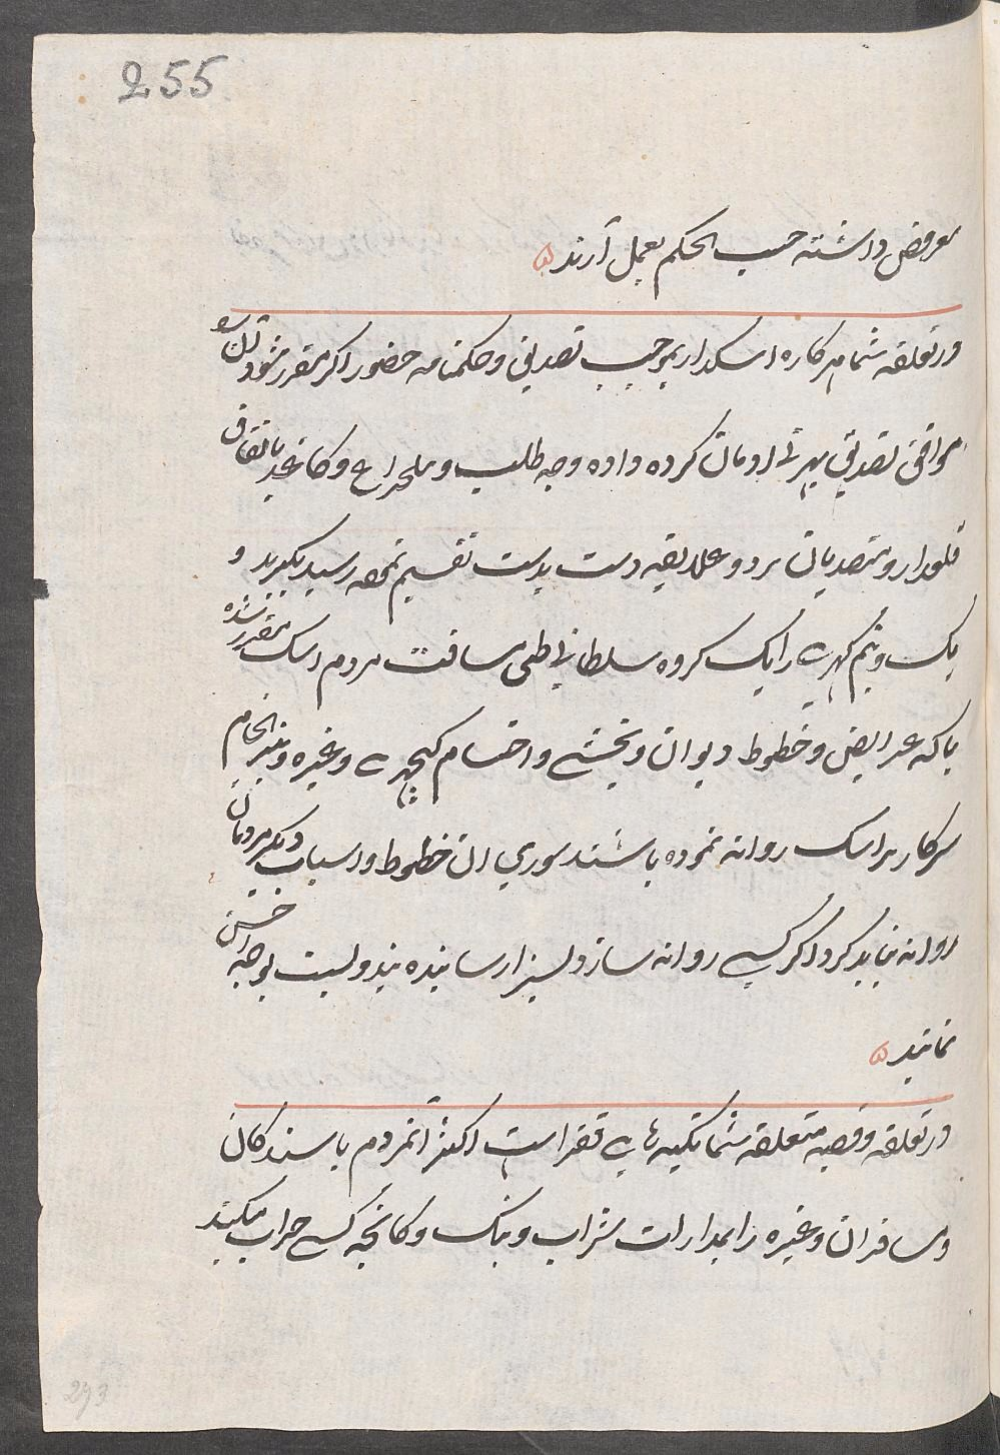 255
معروض داشته حسب الحکم بعمل آرند ۵
در تعلقه شما هرکاره اسکدار بموجب تصدیق و حکمنامه حضور اکر مقرر شود
موافق تصدیق کرده داده وجه طلب و کاغذ باتفاق
قلعدار و متصدیان دست بدست تقسیم نموده رسید بکیرید و
یک و نیم کهری را یک کروه سلطانی طی مسافت مردم اسک مقرر شده
باکه عرایض و خطوط دیوان و بخشی و احشام کچهری و غیره
سرکار براسک روانه نموده باشند سوای ان خطوط و اسباب دیکر مردمان
روانه نباید کرد اکر کسی روانه سازد بسزا رسانیده بندوبست بوجه احسن
نمایند ۵
در تعلقه و قصبه متعلقه شما تکیه های فقرا است اکثر انمردم باشندکان
و مسافران و غیره را بمدارات شراب و بنک و کانجه کسی خراب میکنند
293